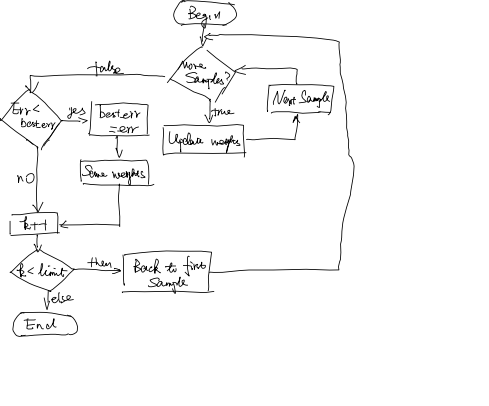 Begin
More
Samples?
false
true
Next Sample
Update weights
Err <
besterr
yes
besterr
=err
Save weights
no
k++
k < limit
then
Back to first
Sample
else
End